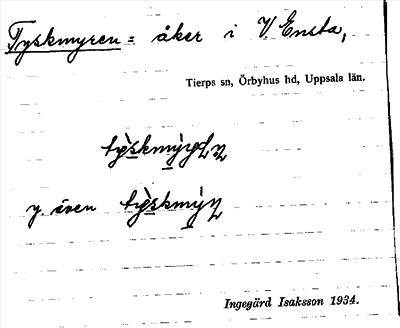 Tyskmyren = åker i V. Ensta,
Tierps sn, Örbyhus hd, Uppsala län.
y. även
Ingegärd Isaksson 1934.